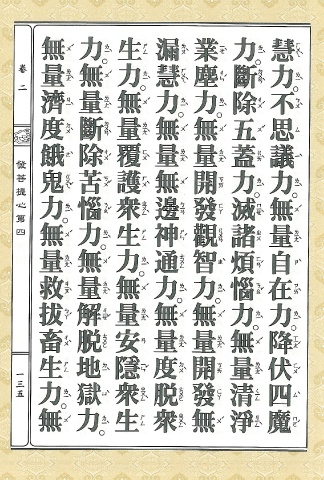 慧力。不思議力。無量自在力。降伏四魔
力。斷除五蓋力。滅諸煩惱力。無量清淨
業塵力。無量開發觀智力。無量開發無
漏慧力。無量無邊神通力。無量度脫衆
生力。無量覆護衆生力。無量安隱衆生
力。無量斷除苦惱力。無量解脫地獄力。
無量濟度餓鬼力。無量救拔畜生力。無
卷二
發菩提心第四
一三五